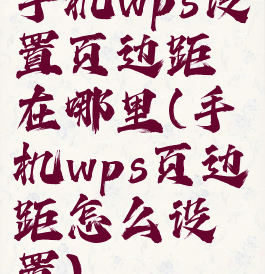 手机wps设
置页边距
在哪里(手
机wps页边
距怎么设
置)